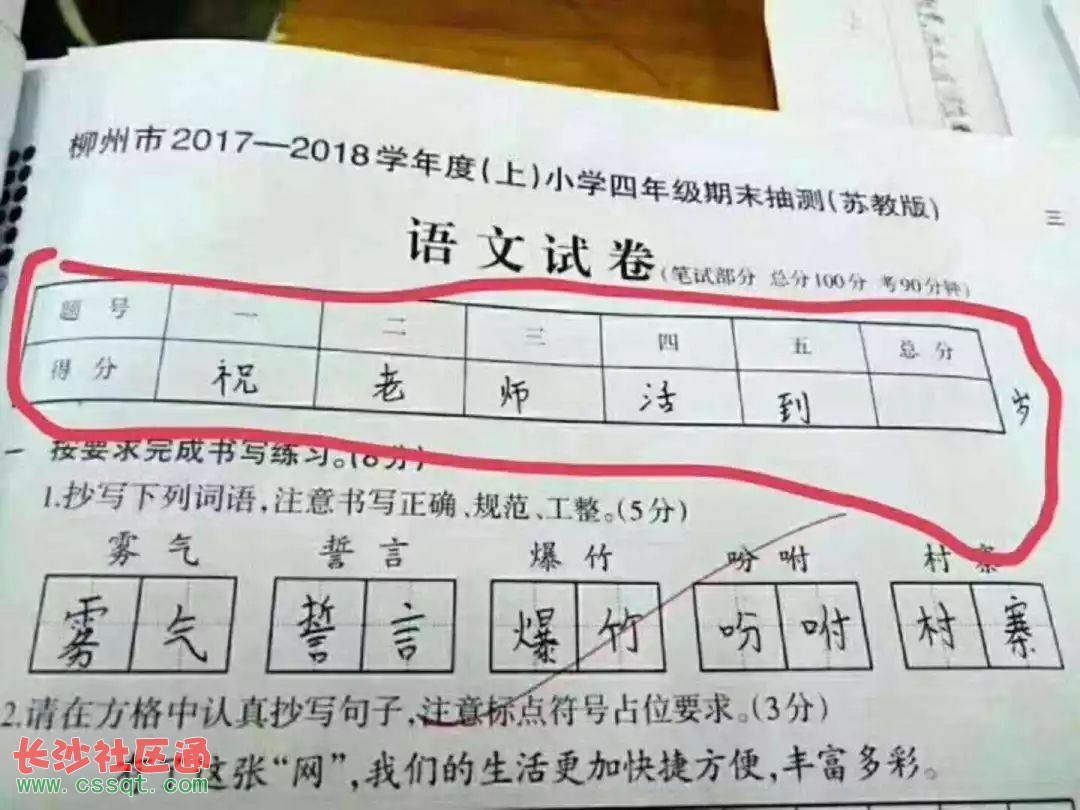 柳州市2017—2018学年度(上)小学四年级期末抽测(苏教版)
三
语文试卷(笔试部分 总分100分 考90分钟)
题号 一 二 三 四 五 总分
得分 祝 老 师 活 到 岁
一 按要求完成书写练习。(8分)
1.抄写下列词语,注意书写正确、规范、工整。(5分)
雾气 誓言 爆竹 吩咐 村寨
雾气 誓言 爆竹 吩咐 村寨
2.请在方格中认真抄写句子、注意标点符号占位要求。(3分)
这张“网”,我们的生活更加快捷方便,丰富多彩。
长沙社区通
www.cssqt.com